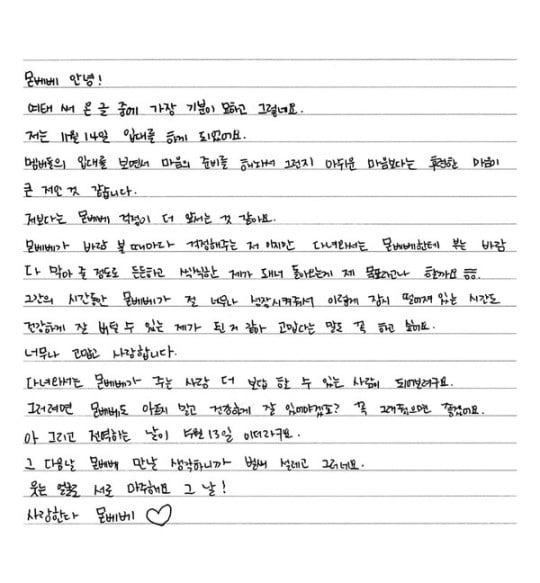 몬베베 안녕!
여태 써 온 글 중에 가장 기분이 묘하고 그렇네요.
저는 11월 14일 입대를 하게 되었어요.
멤버들의 입대를 보면서 마음의 준비를 해놔서 그런지 아쉬운 마음보다는 후련한 마음이
큰 것 같습니다.
저보다는 몬베베 걱정이 더 앞서는 것 같아요.
몬베베가 바람 불 때마다 걱정해주는 저 이지만 다녀와서는 몬베베한테 부는 바람
다 막아 줄 정도로 든든하고 씩씩한 제가 돼서 돌아오는게 제 목표라고나 할까요 ㅎㅎ.
그간의 시간동안 몬베베가 절 너무나 성장시켜줘서 이렇게 잠시 떨어져 있는 시간도
건강하게 잘 버틸 수 있는 제가 된 거 같아 고맙다는 말도 꼭 하고 싶어요.
너무나 고맙고 사랑합니다.
다녀와서는 몬베베가 주는 사랑 더 보답 할 수 있는 사람이 되어보려구요.
그러려면 몬베베도 아프지 말고 건강하게 잘 있어야겠죠? 꼭 그래줬으면 좋겠어요.
아 그리고 전역하는 날이 5월 13일 이더라구요.
그 다음날 몬베베 만날 생각하니까 벌써 설레고 그러네요.
웃는 얼굴로 서로 마주해요 그 날!
사랑한다 몬베베 ♡